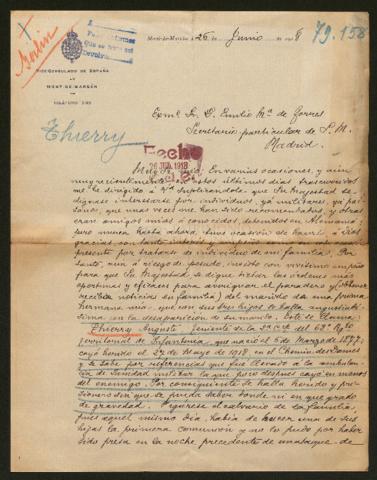 Berlin
Mont-de-Marsan, 26 de Junio de 1918
79.158
VICE-CONSULADO DE ESPAÑA
EN
MONT-DE-MARSAN
Thierry
Exmo. Sr. D. Emilio Mª de Torres
Secretario particular de S. M.
Madrid.
Fecho
1918
Muy Sr. mío: En varias ocasiones, y aún
muy recientemente estos últimos días trascurridos
me he dirigido á Vd. suplicándole que Su Majestad se
dignase interesarse por individuos, ya militares, ya pai-
sanos, que unas veces me han sido recomendados, y otras
eran amigos míos ó conocidos, detenidos en Alemania;
pero nunca hasta ahora tuve ocasión de hacerlo á Dios
gracias, con tanto interés y empeño como en este caso
presente por tratarse de individuo de mi familia. Por
tanto, aún á riesgo de pesado, insisto con vivísimo empeño
para que Su Majestad se digne dictar las órdenes más
oportunas y eficaces para averiguar el paradero y (obtener
recibir noticias su familia) del marido de una prima
hermana mía, que con sus hijos se halla angustiadí-
sima con la desaparición de su marido. Este se llama:
Thierry Auguste, Teniente de la 2ª Cª del 68º Rgto
territorial de Infantería, que nació el 5 de Marzo de 1877;
cayó herido el 27 de Mayo de 1918 en el Chemin des Dames
y se sabe por referencias que fue llevado á la ambulan-
cia de Sanidad militar la que poco despues cayó en manos
del enemigo. Por consiguiente se halla herido y pri-
sionero sin que se pueda saber donde ni en que grado
de gravedad. Figúrese el calvario de la familia,
pues aquel mismo día había de hacer una de sus
hijas la primera comunión y no lo pudo por haber
sido presa en la noche precedente de un ataque de